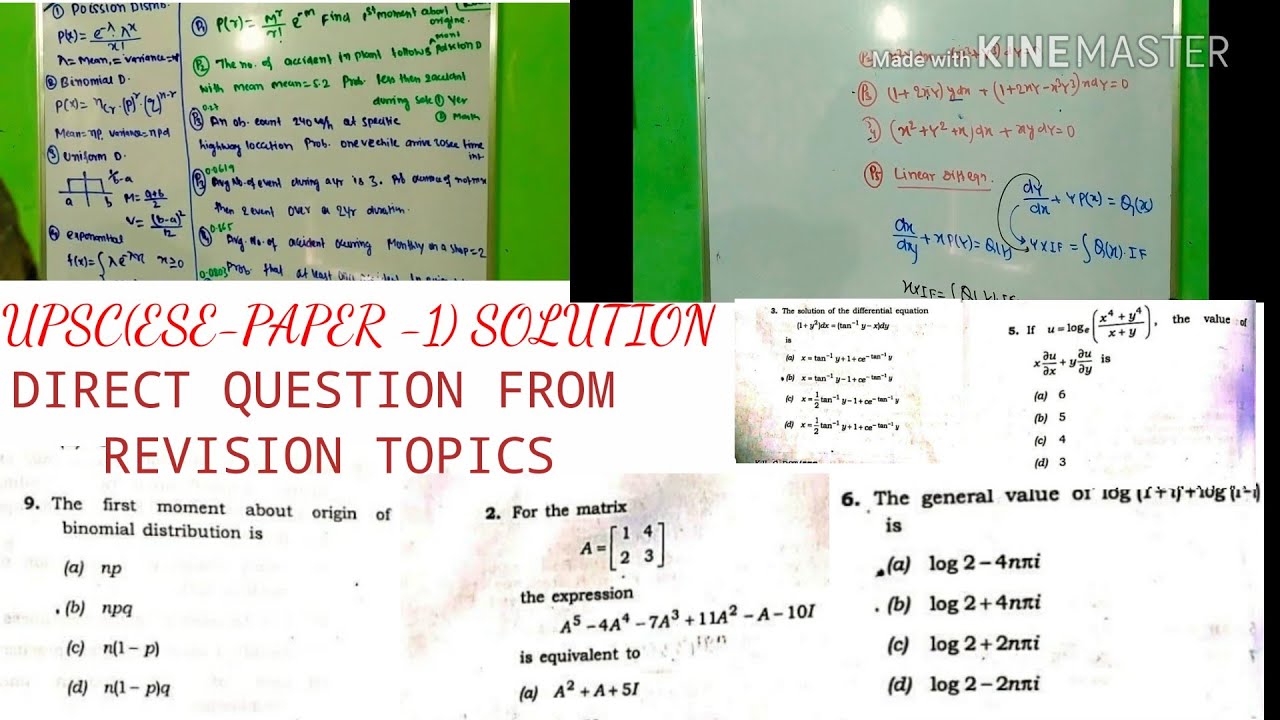 ① Poission Distribn.
P(x) = e^-λ λ^x / x!
λ = Mean, = variance =
② Binomial D.
P(x) = nCr (P)^r (q)^n-r
Mean = np, variance = npq
③ Uniform D.
1/b-a
a b
M = a+b/2
V = (b-a)^2/12
④ exponential
f(x) = λe^-λx x≥0
P1 P(r) = m^r/r! e^-m Find 1st moment about
origine.
P2 The no. of accident in plant follows Poission D
with mean mean = 5.2 Prob. less then 2 accident
during
0.27
An ob. count 240 veh/h at specific
highway location Prob. one vechile arrive 30sec time
int.
0.0619
Avg No. of event during a yr is 3. 
then 2 event over a 2yr duration.
Avg. No. of accident occuring Monthly on a shop = 2
0.0803 Prob that at least
Made with KINEMASTER
P3 (1+2xy) ydx + (1+2xy-x²y²) xdy = 0
(x²+y²+x)dx + xydy = 0
P5 Linear Diff eqn.
dy/dx + yP(x) = Q(x)
dx/dy + xP(y) = Q(y)
y×IF = ∫Q(x).IF
UPSC(ESE-PAPER -1) SOLUTION
DIRECT QUESTION FROM
REVISION TOPICS
3. The solution of the differential equation
(1+y²)dx = (tan⁻¹ y − x)dy
is
(a) x = tan⁻¹ y + 1 + ce^−tan⁻¹ y
(b) x = tan⁻¹ y − 1 + ce^−tan⁻¹ y
(c) x = 1/2 tan⁻¹ y − 1 + ce^−tan⁻¹ y
(d) x = 1/2 tan⁻¹ y + 1 + ce^−tan⁻¹ y
5. If u = logₑ((x⁴ + y⁴)/(x + y)), the value of
x ∂u/∂x + y ∂u/∂y is
(a) 6
(b) 5
(c) 4
(d) 3
9. The first moment about origin of
binomial distribution is
(a) np
(b) npq
(c) n(1 − p)
(d) n(1 − p)q
2. For the matrix
A = [1 4
2 3]
the expression
A⁵ − 4A⁴ − 7A³ + 11A² − A − 10I
is equivalent to
(a) A² + A + 5I
6. The general value of log (1+i) + log (1−i)
is
(a) log 2 − 4nπi
(b) log 2 + 4nπi
(c) log 2 + 2nπi
(d) log 2 − 2nπi